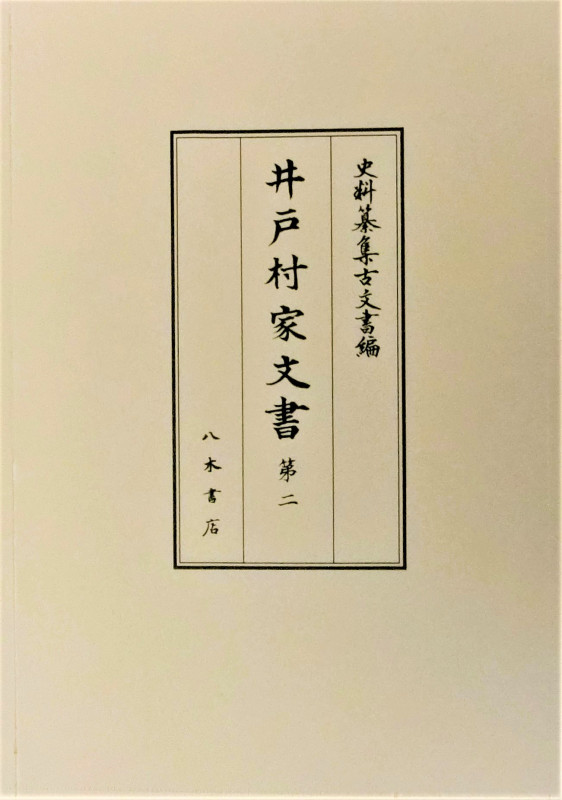 史料纂集古文書編
井戸村家文書 第二
八木書店